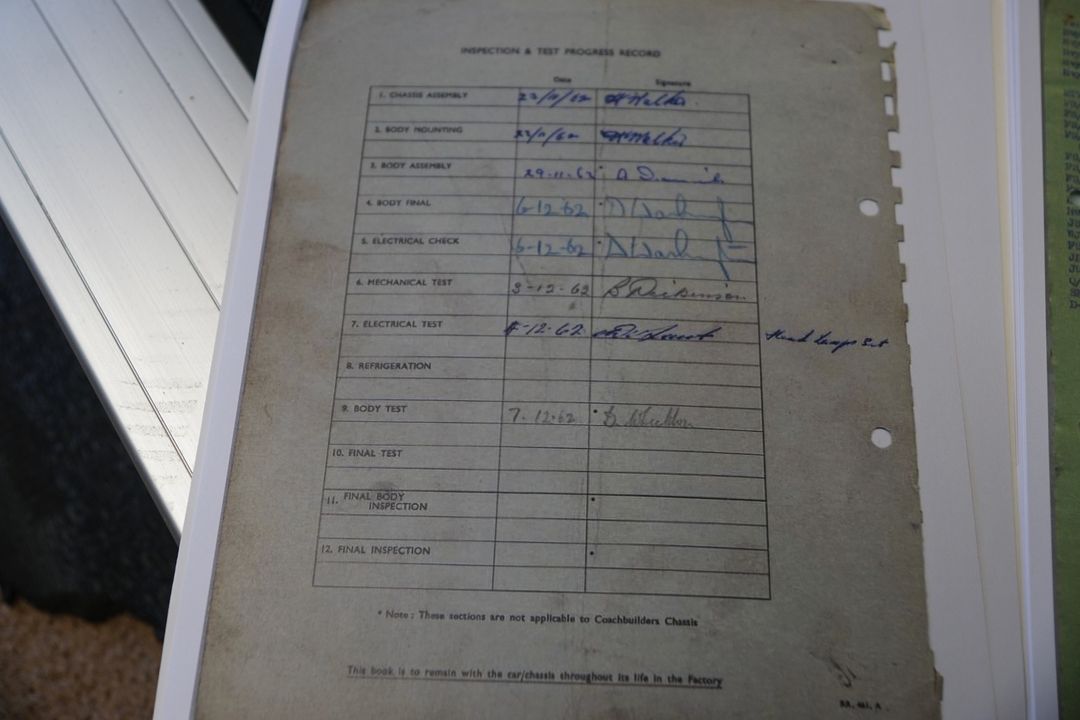 INSPECTION & TEST PROGRESS RECORD
Date Signature
1. CHASSIS ASSEMBLY 22/11/62 H Walker
2. BODY MOUNTING 22/11/62 H Walker
3. BODY ASSEMBLY 29.11.62 * A
4. BODY FINAL 6-12-62 *
5. ELECTRICAL CHECK 6-12-62 *
6. MECHANICAL TEST 3-12-62
7. ELECTRICAL TEST -12-62 Head Lamps Set
8. REFRIGERATION
9. BODY TEST 7.12.62 *
10. FINAL TEST
11. FINAL BODY
INSPECTION *
12. FINAL INSPECTION *
* Note : These sections are not applicable to Coachbuilders Chassis
This book is to remain with the car/chassis throughout its life in the Factory